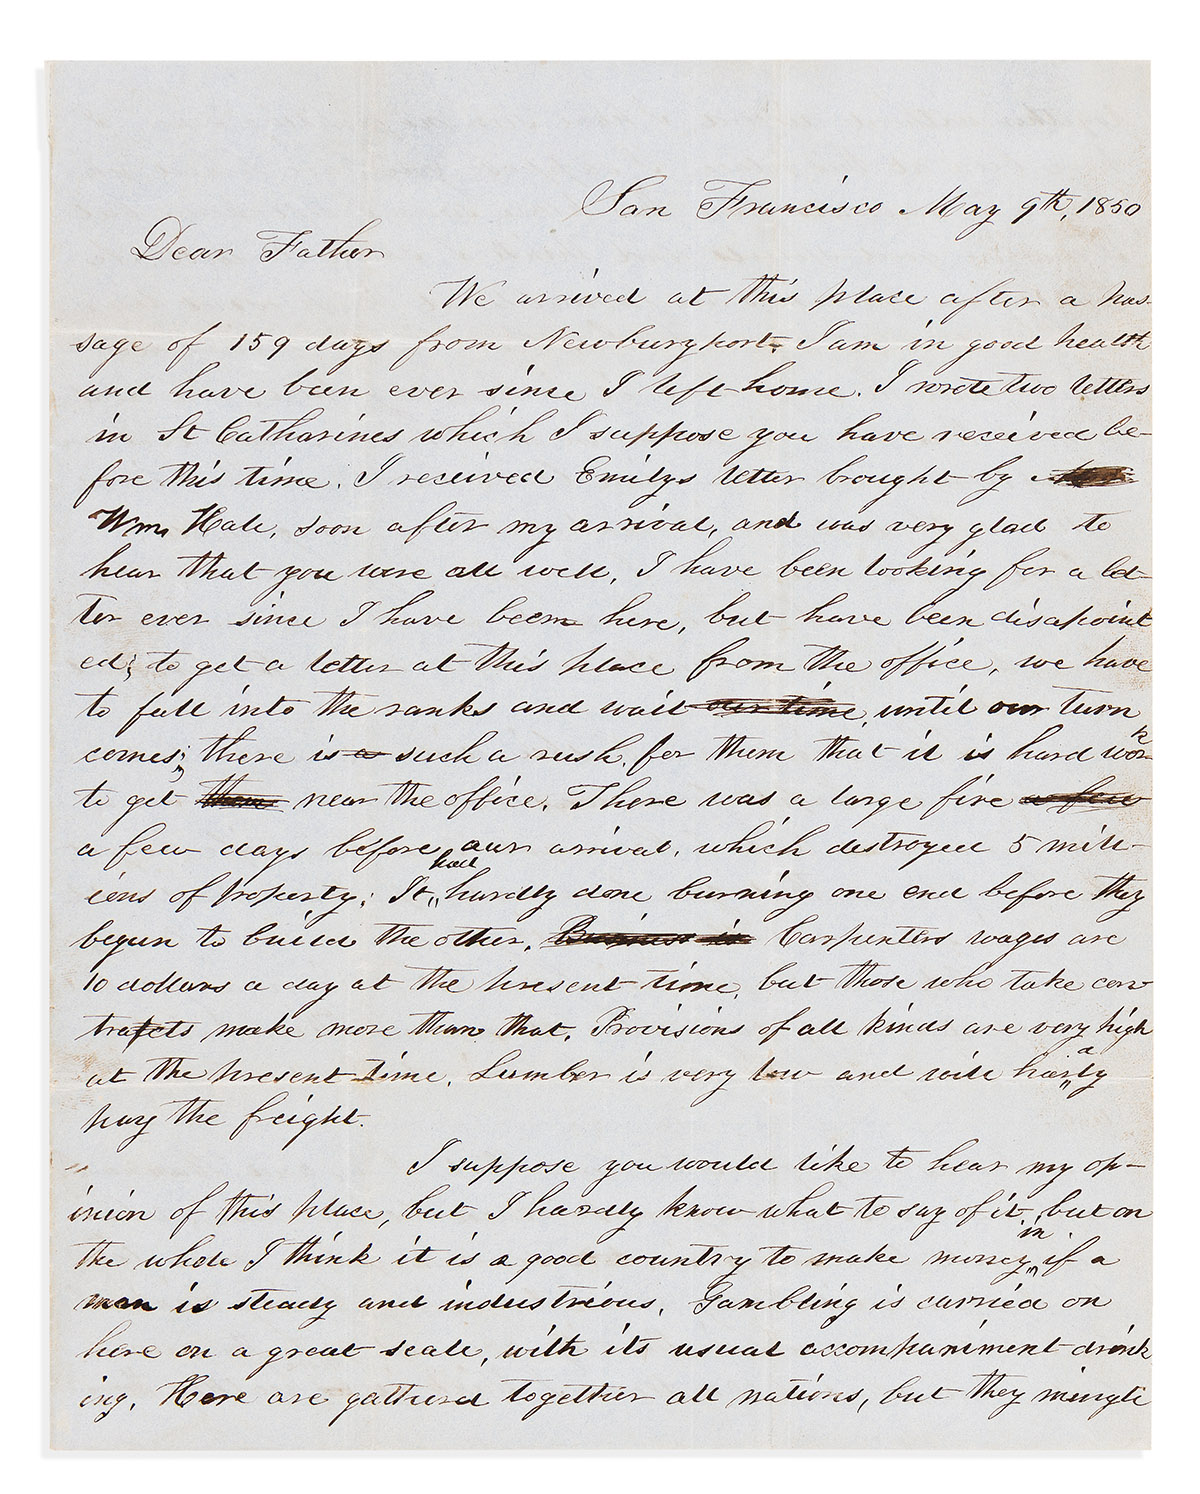 San Francisco May 9th, 1850
Dear Father
We arrived at this place after a pas-
sage of 159 days from Newburyport. I am in good health
and have been ever since I left home. I wrote two letters
in St Catharines which I suppose you have received be-
fore this time. I received Emilys letter brought by
Wm Hale, soon after my arrival, and was very glad to
hear that you were all well, I have been looking for a let-
ter ever since I have been here, but have been disapoint
ed; to get a letter at this place from the office, we have
to fall into the ranks and wait our time, until our turn
comes; there is a such a rush for them that it is hard work
to get them near the office. There was a large fire a few
a few days before our arrival, which destroyed 5 mill-
ions of property; It had hardly done burning one end before they
begun to build the other. Business is Carpenters wages are
10 dollars a day at the present time, but those who take con-
tracts make more than that. Provisions of all kinds are very high
at the present time. Lumber is very low and will hardly
pay the freight.
I suppose you would like to hear my op-
inion of this place, but I hardly know what to say of it, but on
the whole I think it is a good country to make money in, if a
man is steady and industrious. Gambling is carried on
here on a great scale, with its usual accompaniment drink
ing. Here are gathered together all nations, but they mingle